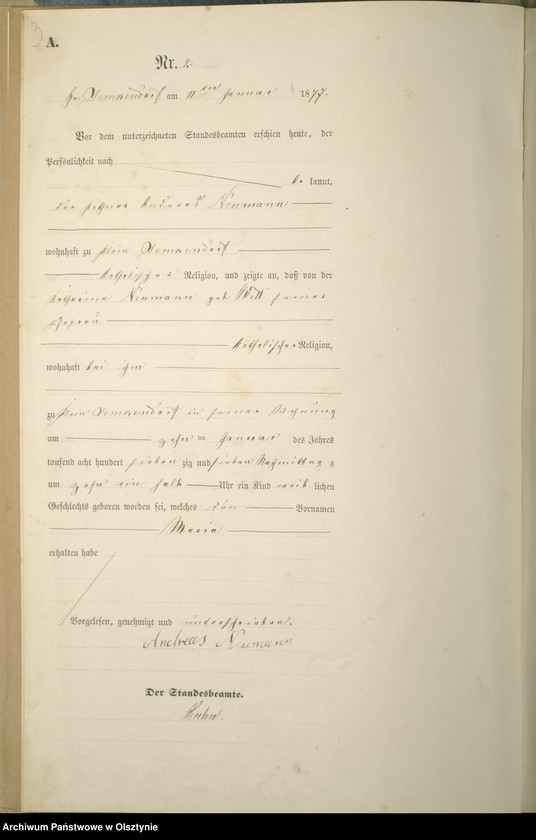 A.
Nr. 2.
am 11ten Januar 1877.
Vor dem unterzeichneten Standesbeamten erschien heute, der
Persönlichkeit nach
be kannt,
der Andreas Neumann
wohnhaft zu Klein
katholischer Religion, und zeigte an, daß von der
Catharina Neumann geb. Witt seiner
Ehefrau
katholischer Religion,
wohnhaft bei ihm
zu Klein in seiner Wohnung
am zehn ten Januar des Jahres
tausend acht hundert sieben zig und sieben Nachmittag s
um zehn ein halb Uhr ein Kind weib lichen
Geschlechts geboren worden sei, welches den Vornamen
Maria
erhalten habe
Vorgelesen, genehmigt und unterschrieben.
Andreas Neumann
Der Standesbeamte.
Archiwum Państwowe w Olsztynie